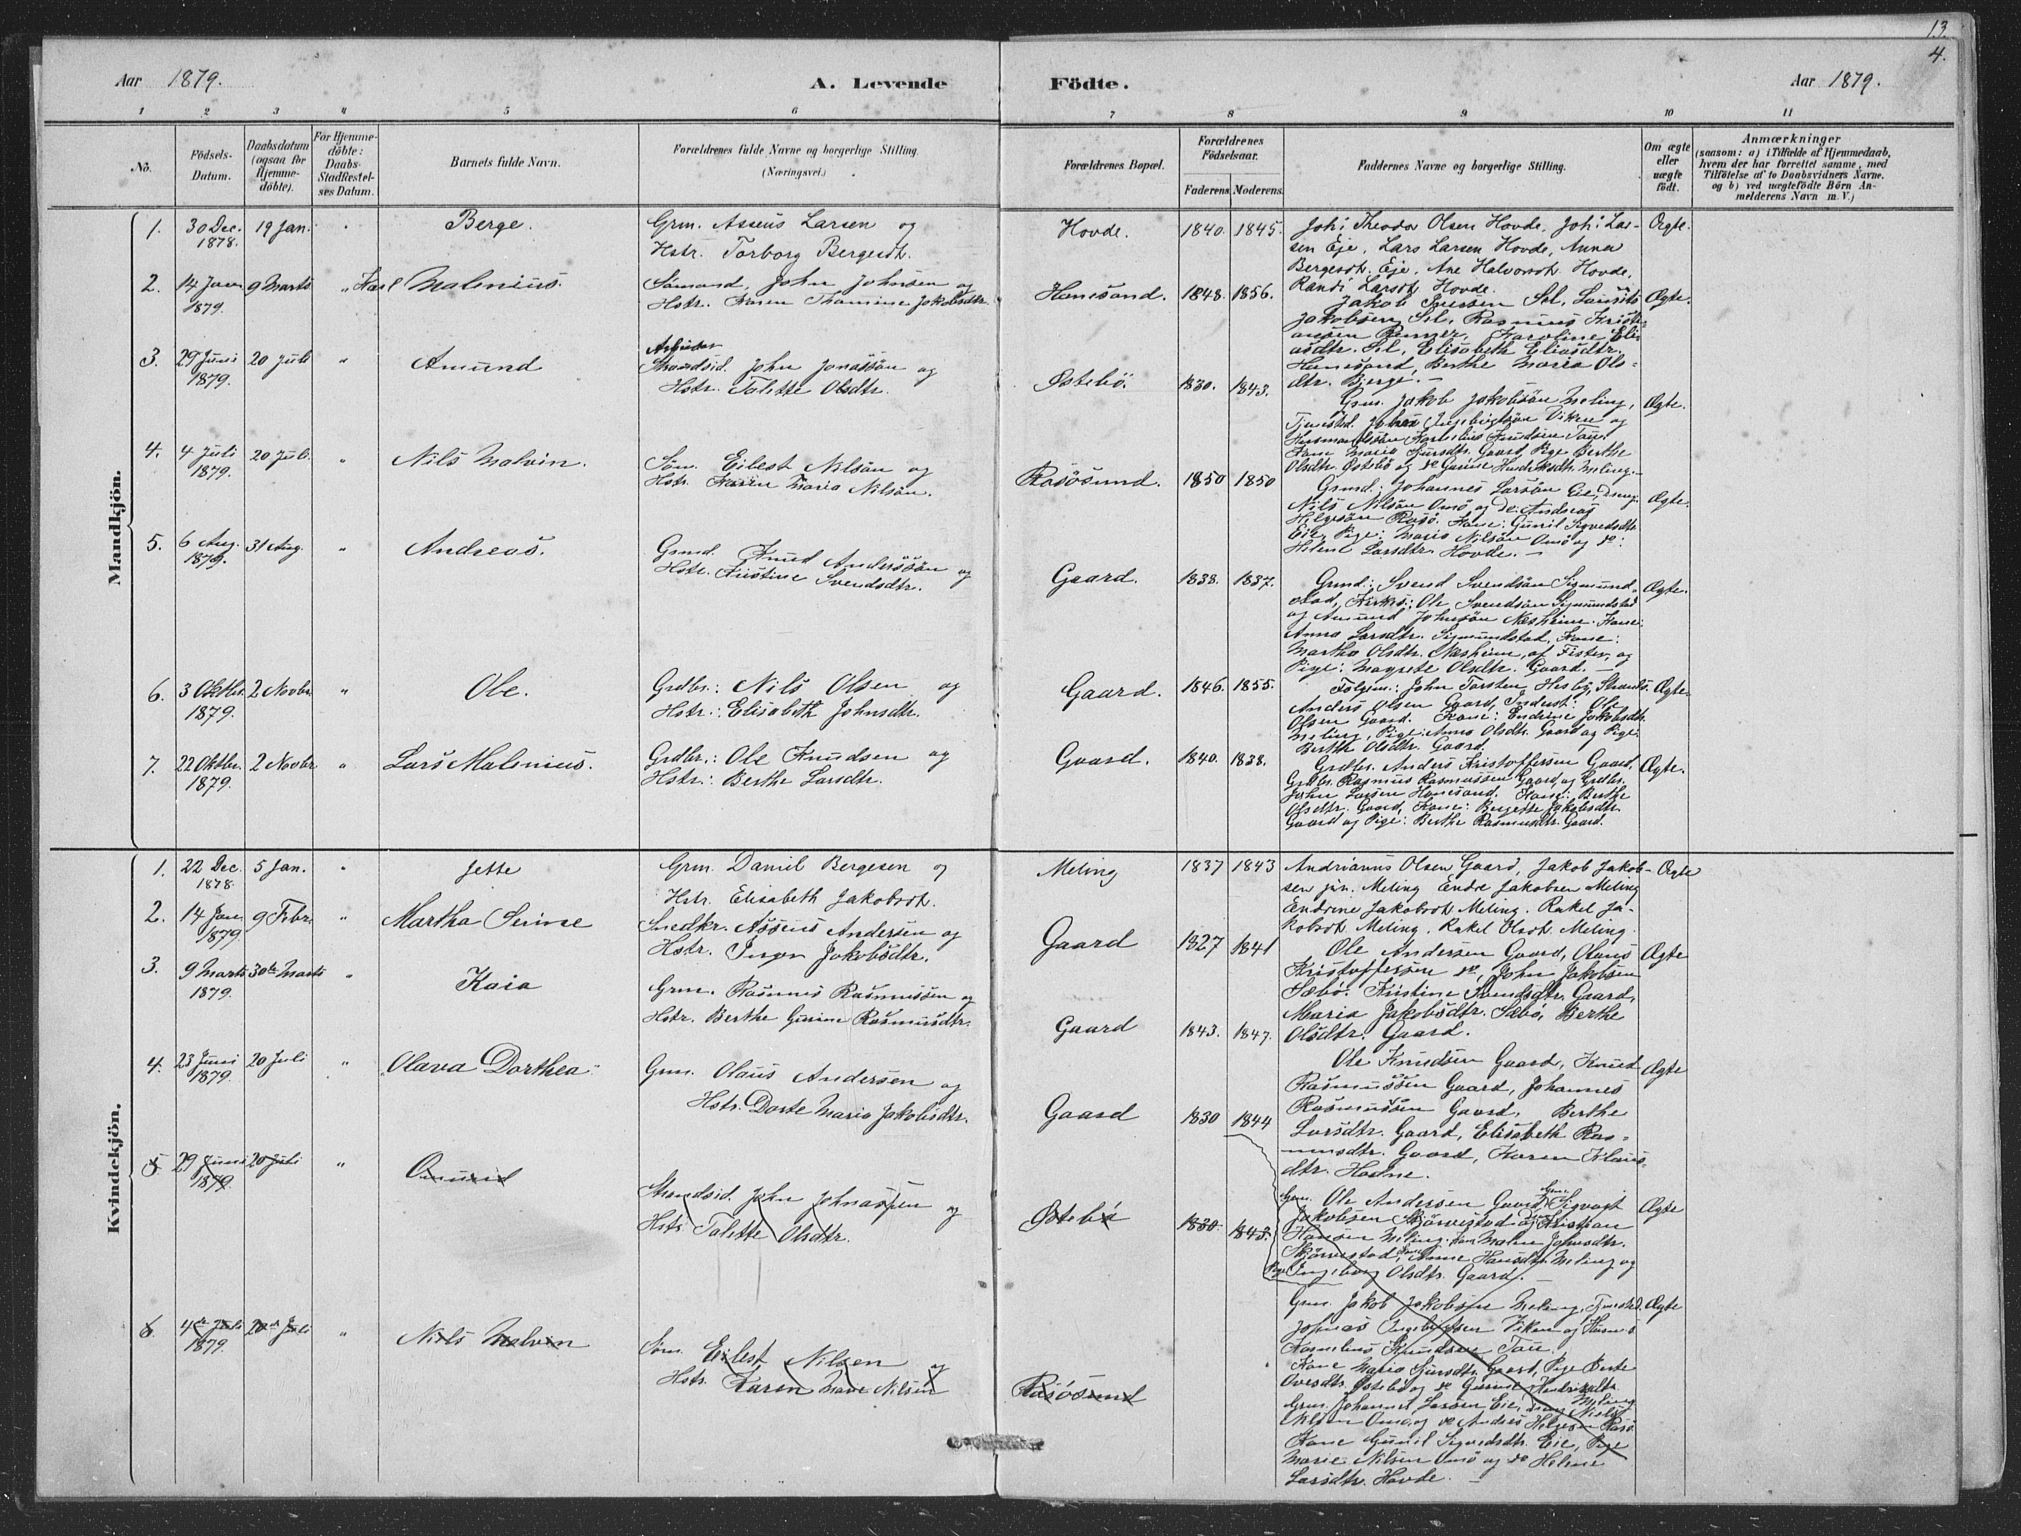 13.
4.
Aar 1879.
A. Levende Födte.
Aar 1879.
1 2 3 4 5 6 7 8 9 10 11
No.
Födsels-
Datum.
Daabsdatum
(ogsaa for
Hjemme-
döbte).
For Hjemme-
döbte:
Daabs-
Stadfæstel-
ses Datum.
Barnets fulde Navn.
Forældrenes fulde Navne og borgerlige Stilling.
(Næringsvei.)
Forældrenes Bopæl.
Forældrenes
Födselsaar.
Faderens Moderens.
Faddernes Navne og borgerlige Stilling.
Om ægte
eller
uægte
födt.
Anmærkninger
(saasom: a) i Tilfælde af Hjemmedaab,
hvem der har forrettet samme, med
Tilföielse af to Daabsvidners Navne,
og b) ved uægtefödte Börn An-
melderens Navn m. V.)
Mandkjön.
1. 30 Dec. 1878. 19 Jan. Berge.
Grm. Asseus Larsen og
Hstr. Torborg Bergesdt.
Hovde. 1840. 1845. Ægte.
Joh: Theodor Olsen Hovde, Joh: Lar-
sen Eje, Lars Larsen Hovde, Anna
Bergesdt. Eje, Ane Halvorsdt. Hovde,
Randi Larsdt. Hovde.
2. 14 Janr 1879. 9 Marts " Karl Malenius.
Sømand, John Johnsen og
Hstr. Karen Thomine Jakobsdtr.
Hanesand. 1848. 1856. Ægte.
Jakob Iversen Sel, Laurits
Jakobsen Sel, Rasmus Kristi-
ansen Renner, Karoline Eli-
asdtr. Sel, Elisabeth Eliasdtr.
Hanesand, Berthe Maria Ols-
dtr. Bjerge. —
3. 29 Juni 1879. 20 Juli " Amund
Arbeider
Strandsid. John Jonassön og
Hstr. Talette Olsdtr.
Østebö. 1830. 1843. Ægte.
Grm. Jakob Jakobsön Meling,
Tjenestkd. Johan Ingebrigtsön Viken og
Husmandssön Kornelius Knudsön Tau.
Kone Maria Sjursdtr. Gaard, Pige Berthe
Olsdtr. Østebö og do Gurine Hendriksdtr. Meling. —
4. 4 Juli 1879. 20 Juli. " Nils Malvin.
Söm. Eilest Nilsön og
Hstr. Karen Maria Nilsön.
Rasösund. 1850 1850 Ægte.
Grmd: Johannes Larsön Eie, Dreng:
Nils Nilsön Omö og do Andreas
Helgesön Rasö. Kone: Gunil Sigvesdtr.
Eie, Pige: Maria Nilsön Omö og do:
Helene Larsdtr. Hovde. —
5. 6 Aug. 1879. 31 Aug. " Andreas.
Grmd. Knud Anderssön og
Hstr. Kristine Svendsdtr.
Gaard. 1838. 1837. Ægte.
Grmd: Svend Svendsön Sigmund-
stad, Kirkes: Ole Svendsön Sigmundstad
og Amund Johnsön Næsheim. Kone:
Anna Larsdtr. Sigmundstad, Kone:
Martha Olsdtr. Næsheim, af Fister, og
Pige: Magrete Olsdtr. Gaard. —
6. 3 Oktbr. 1879. 2 Novbr. " Ole.
Grdbr.: Nils Olsen og
Hstr.: Elisabeth Johnsdtr.
Gaard. 1846. 1855. Ægte
Folgem.: John Torsten Hesby, Strands:
Anders Olsen Gaard, Inderst: Ole
Olsen Gaard. Kone: Endrine Jakobsdtr.
Meling, Pige: Anna Olsdtr. Gaard og Pige:
Berthe Olsdtr. Gaard.
7. 22 Oktbr. 1879. 2 Novbr " Lars Malenius.
Grdbr.: Ole Knudsen og
Hstr.: Berthe Larsdtr.
Gaard. 1840. 1838. Ægte.
Grdbr. Anders Kristoffersen Gaard,
Grdbr. Rasmus Rasmussen Gaard, og Grdbr.
John Larsen Hanesand. Kone: Berthe
Olsdtr. Gaard, Kone: Bergette Jakobsdtr.
Gaard og Pige: Berthe Rasmusdtr. Gaard.
Kvindekjön.
1. 22 Dec. 1878. 5 Jan. " Jette
Grm. Daniel Bergesen og
Hstr. Elisabeth Jakobsdt.
Meling 1837 1843 Ægte
Andrianus Olsen Gaard, Jakob Jakob-
sen jun. Meling Endre Jakobsen Meling
Endrine Jakobsdt Meling. Rakel Ja-
kobsdt Meling, Rakel Olsdt Meling.
2. 14 Jan 1879 9 Febr. " Martha Serine
Snedkr. Asseus Andersen og
Hstr. Inger Jakobsdtr.
Gaard 1827 1841 Ægte
Ole Andersen Gaard, Olaus
Kristoffersen do, John Jakobsen
Sæbö. Kristine Svendsdtr. Gaard,
Maria Jakobsdtr. Sæbö, Berthe
Olsdtr. Gaard.
3. 9 Marts 1879. 30te Marts " Kaia
Grm. Rasmus Rasmussen og
Hstr. Berthe Gurine Rasmusdtr.
Gaard 1843. 1847. Ægte
Ole Knudsen Gaard, Knud
Rasmussen Gaard, Johannes
Rasmussen Gaard, Berthe
Larsdtr. Gaard, Elisabeth Ras-
musdtr. Gaard, Karen Klaus-
dtr. Hodne.
4. 23 Juni 1879. 20 Juli " "Olava Dorthea"
Grm. Olaus Andersen og
Hstr. Dorte Maria Jakobsdtr.
Gaard 1830 1844 Ægte
Grm. Ole Andersen Gaard, Grm. Sigvart
Jakobsen Skjörvestad og Kristian
Hansen Meling. Kone Malene Johnsdtr.
Skjörvestad, Kone Anne Hansdtr. Meling og
Pige Ingeborg Olsdtr. Gaard. —
5 29 Juni 1879 20 Juli " Amund
Strandsid. John Johnassen og
Hstr Talette Olsdtr.
Østebö 1830. 1843. Ægte
Grm. Jakob Jakobsen Meling, Tjenestkd.
Johnas Ingebrigtsen Viken og Husm.s
Kornelius Knudsen Tau.
Kone Maria Sjursdtr. Gaard, Pige Berte
Olesdtr. Østebö og do Gurine Hendriksdtr.
Meling
6 4de Juli 1879. 20de Juli " Niels Malvin
Söm. Eilest Nilsen og
Hstr. Karen Marie Nilsen
Rasösund
Grm. Johannes Larsen Eie, dreng Niels
Nilsen Omö, og do Anders Helgesen Rasö
Kone Gunil Sigvedsdtr. Eie, Pige
Marie Nilsen Omö og do Helene
Larsdtr. Hovde. —